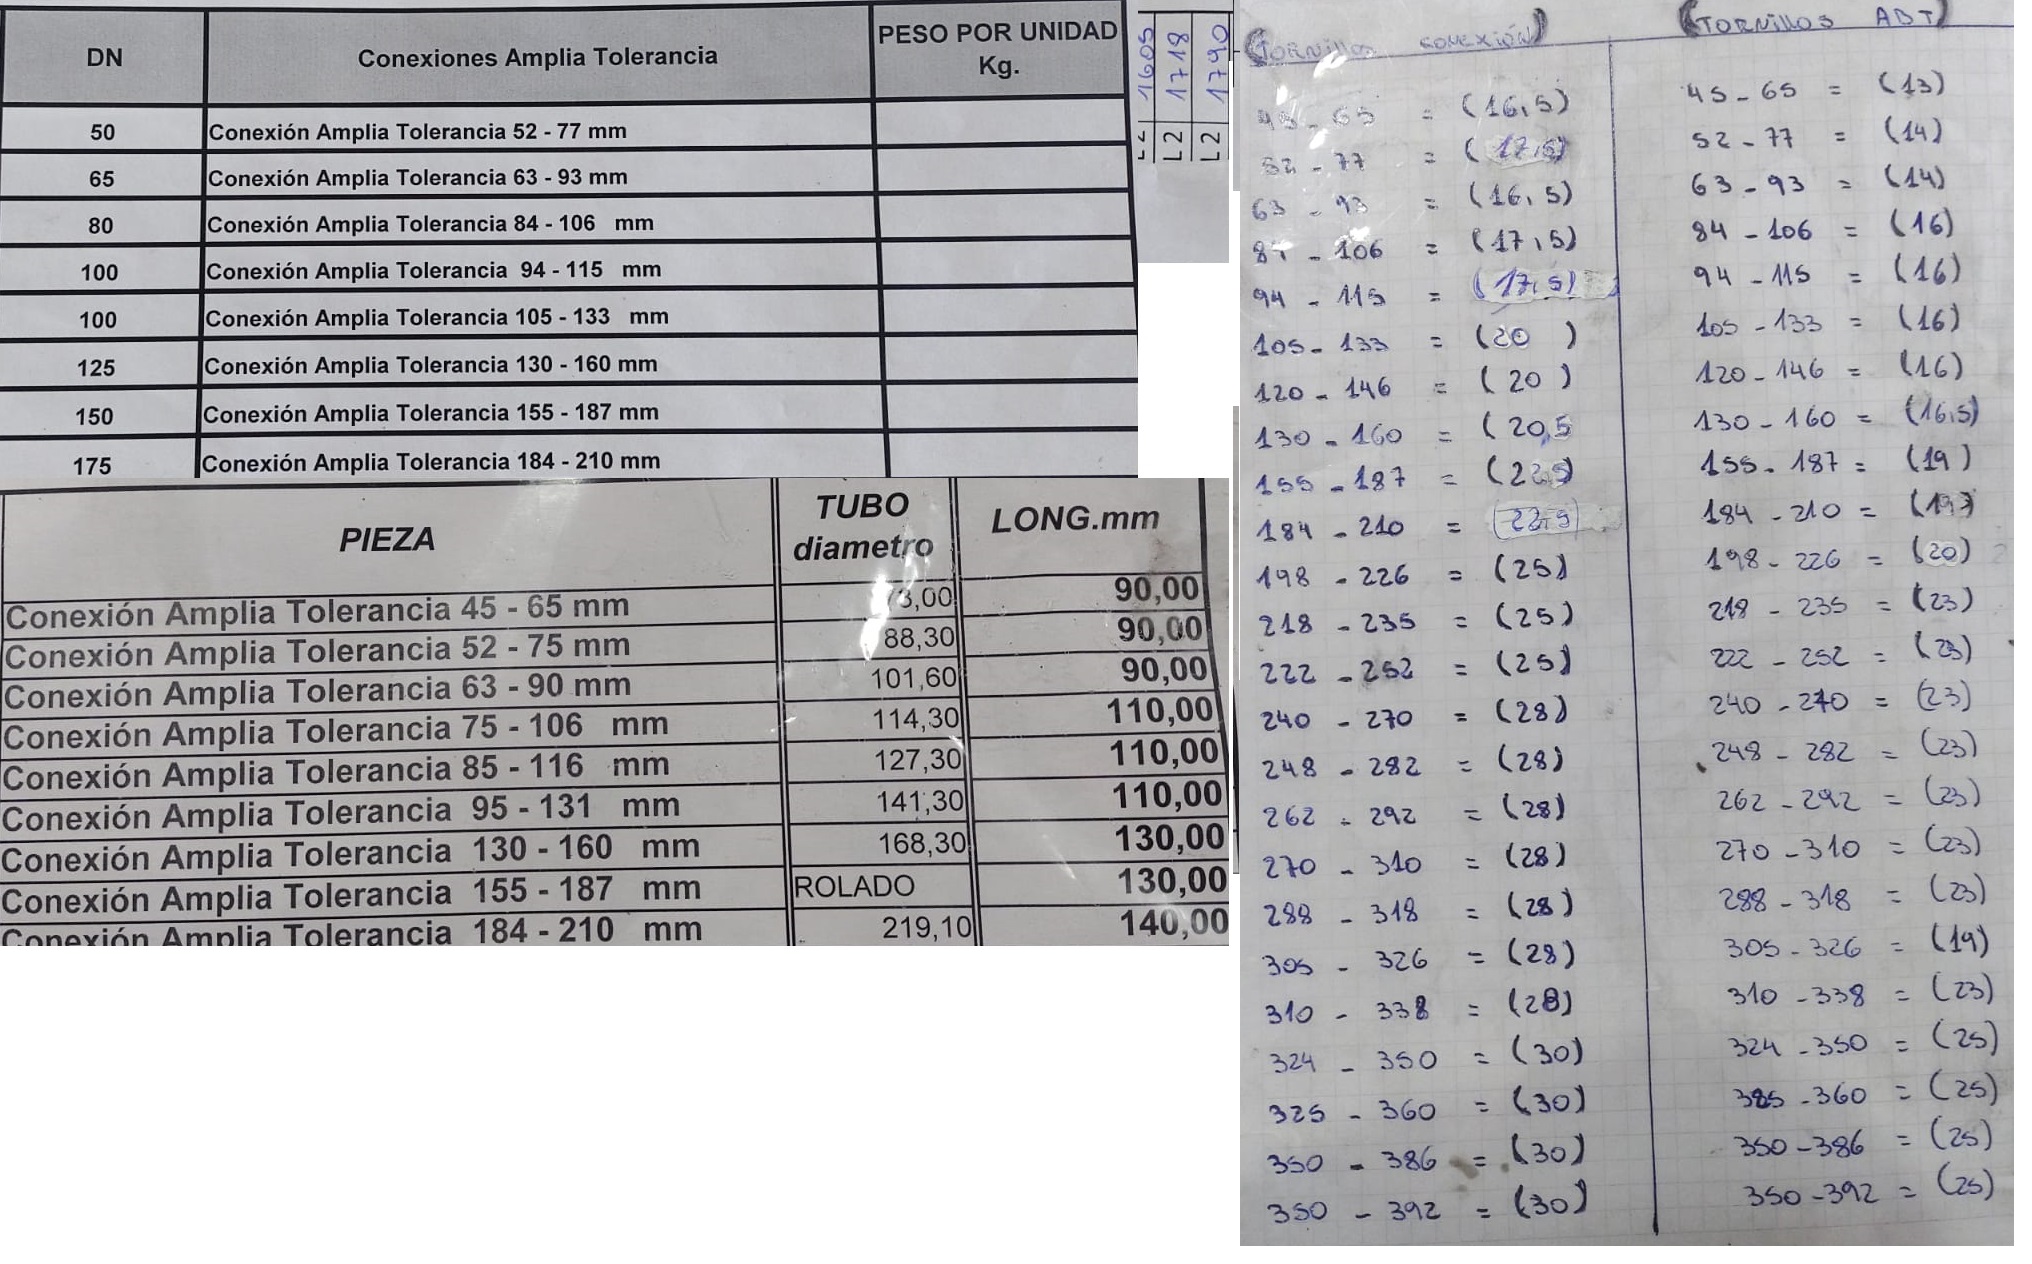 DN Conexiones Amplia Tolerancia PESO POR UNIDAD Kg.
50 Conexión Amplia Tolerancia 52 - 77 mm
65 Conexión Amplia Tolerancia 63 - 93 mm
80 Conexión Amplia Tolerancia 84 - 106 mm
100 Conexión Amplia Tolerancia 94 - 115 mm
100 Conexión Amplia Tolerancia 105 - 133 mm
125 Conexión Amplia Tolerancia 130 - 160 mm
150 Conexión Amplia Tolerancia 155 - 187 mm
175 Conexión Amplia Tolerancia 184 - 210 mm
1605
L2 1718
L2 1790
PIEZA TUBO diametro LONG.mm
Conexión Amplia Tolerancia 45 - 65 mm 73,00 90,00
Conexión Amplia Tolerancia 52 - 75 mm 88,30 90,00
Conexión Amplia Tolerancia 63 - 90 mm 101,60 90,00
Conexión Amplia Tolerancia 75 - 106 mm 114,30 110,00
Conexión Amplia Tolerancia 85 - 116 mm 127,30 110,00
Conexión Amplia Tolerancia 95 - 131 mm 141,30 110,00
Conexión Amplia Tolerancia 130 - 160 mm 168,30 130,00
Conexión Amplia Tolerancia 155 - 187 mm ROLADO 130,00
Conexión Amplia Tolerancia 184 - 210 mm 219,10 140,00
(TORNillos CONEXIÓN)
45 - 65 = (16,5)
52 - 77 = (17,5)
63 - 93 = (16,5)
84 - 106 = (17,5)
94 - 115 = (17,5)
105 - 133 = (20 )
120 - 146 = (20)
130 - 160 = (20,5
155 - 187 = (22,5)
184 - 210 = (22,5)
198 - 226 = (25)
218 - 235 = (25)
222 - 252 = (25)
240 - 270 = (28)
248 - 282 = (28)
262 - 292 = (28)
270 - 310 = (28)
288 - 318 = (28)
305 - 326 = (28)
310 - 338 = (28)
324 - 350 = (30)
325 - 360 = (30)
350 - 386 = (30)
350 - 392 = (30)
(TORNillos ABT)
45 - 65 = (13)
52 - 77 = (14)
63 - 93 = (14)
84 - 106 = (16)
94 - 115 = (16)
105 - 133 = (16)
120 - 146 = (16)
130 - 160 = (16,5)
155 - 187 = (19)
184 - 210 = (19)
198 - 226 = (20)
218 - 235 = (23)
222 - 252 = (23)
240 - 270 = (23)
248 - 282 = (23)
262 - 292 = (23)
270 - 310 = (23)
288 - 318 = (23)
305 - 326 = (19)
310 - 338 = (23)
324 - 350 = (25)
325 - 360 = (25)
350 - 386 = (25)
350 - 392 = (25)